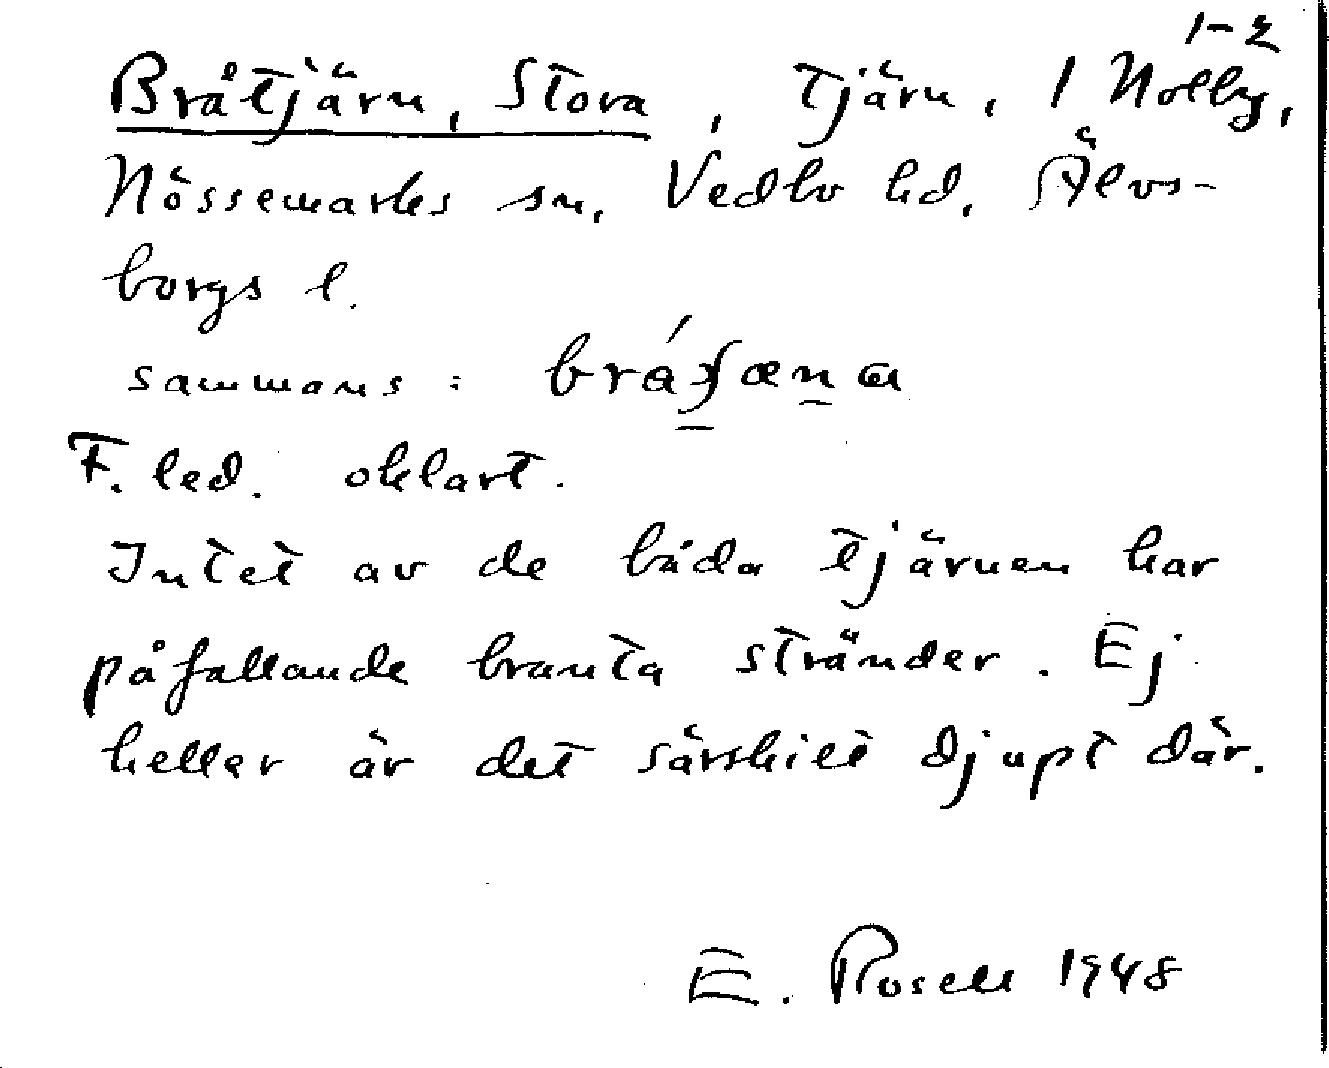 1-2
Bråtjärn, Stora, Tjärn, 1 Nolby,
Nössemarks sn, Vedbo hd, Älvs-
borgs l.
sammans:
F. led. oklart.
Intet av de båda tjärnen har
påfallande branta stränder. Ej
heller är det särskilt djupt där.
E. Rosell 1948